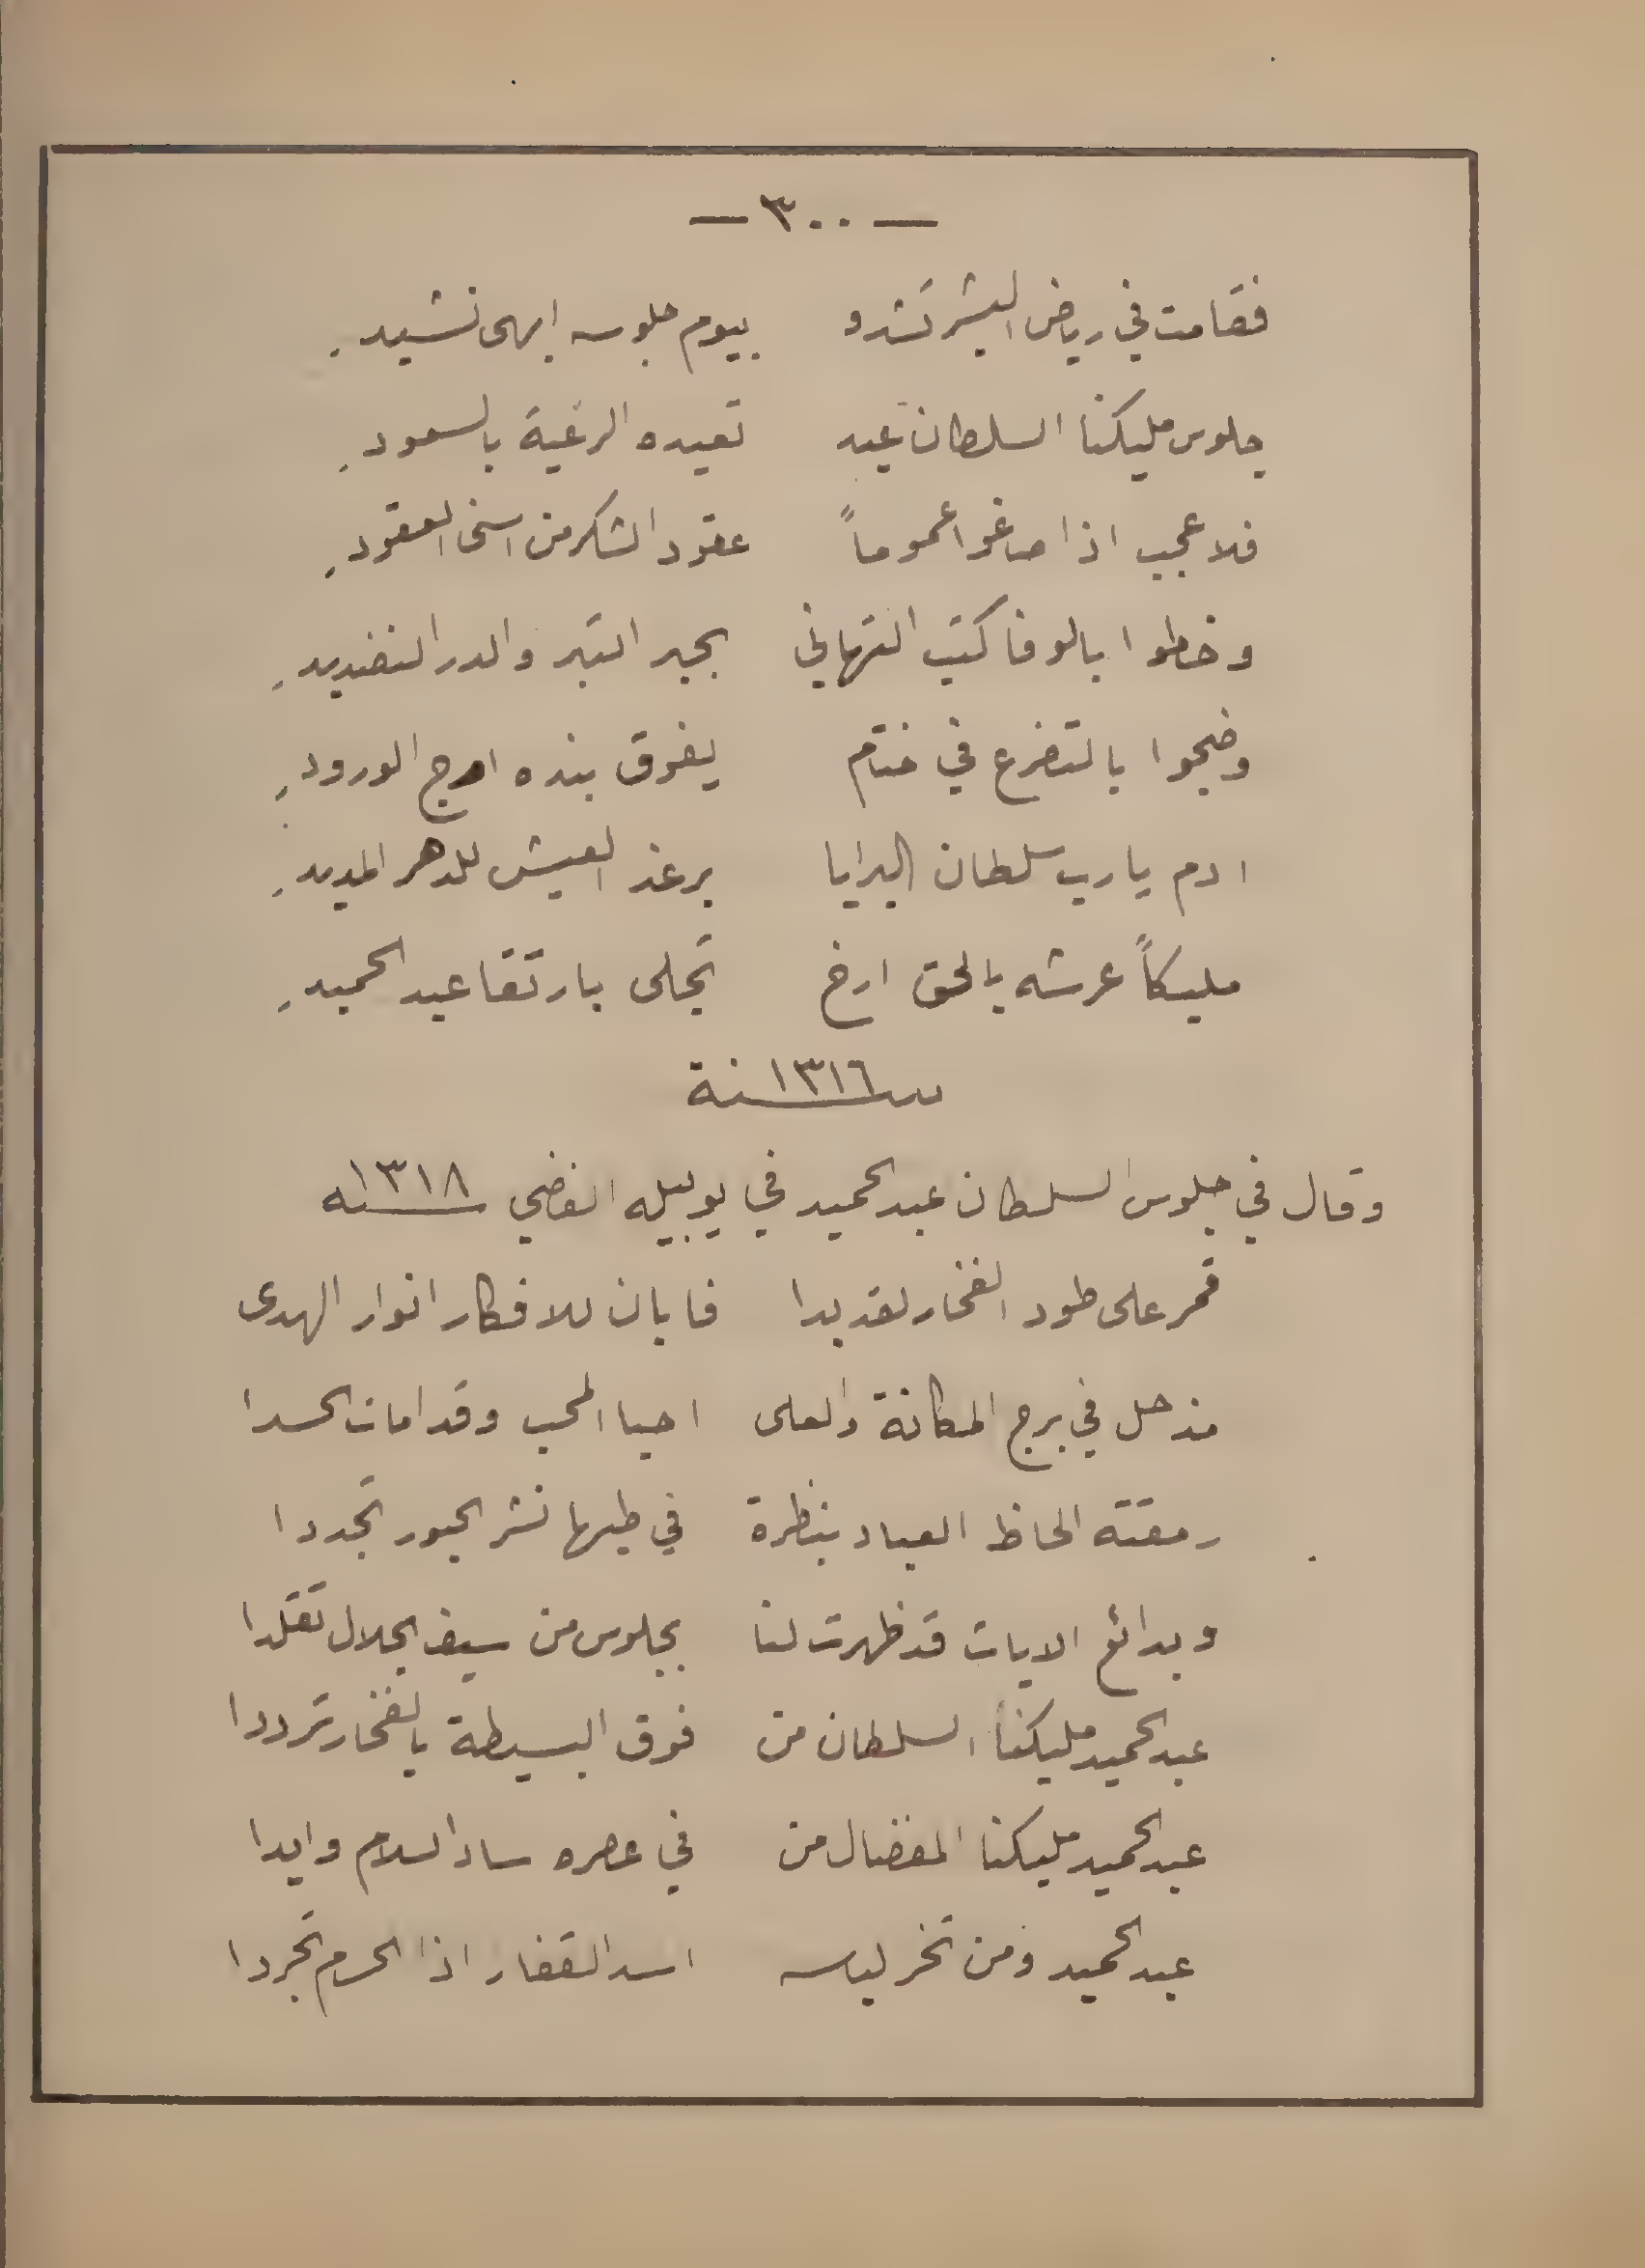 — ٣٠٠ —
فقامت في رياض البشر تشدو بيوم جلوسه ابهى نشيدِ
جلوس مليكنا السلطان عيد تعيده الرعية بالسعودِ
فلا عجب اذا صاغوا عموماً عقود الشكر من اسنى العقودِ
وخطوا بالوفا كتب التهاني بحبر التبر والدر النضيدِ
وضجوا بالتضرع في ختام يفوق بنده ارج الورودِ
ادم يا رب سلطان البرايا برغد العيش للدهر المديدِ
مليكاً عرشه بالحق ارخ تجلى بارتقا عبد الحميدِ
سنة ١٣١٦
وقال في جلوس السلطان عبد الحميد في يوبيله الفضي سنه ١٣١٨
قمر على طود الفخار لقد بدا فابان للافكار انوار الهدى
مذ حل في برج المكانة والعلى احيا المحب وقد امات الحسدا
رمقته الحاظ العباد بنظرة في طيها نشر الحبور تجددا
وبدائع الايات قد ظهرت لنا بجلوس من سيف الجلال تقلدا
عبد الحميد مليكنا السلطان من فوق البسيطة بالفخار ترددا
عبد الحميد مليكنا المفضال من في عصره ساد السلام وايدا
عبد الحميد ومن تخر لباسه اسد القفار اذا الحسام تجردا